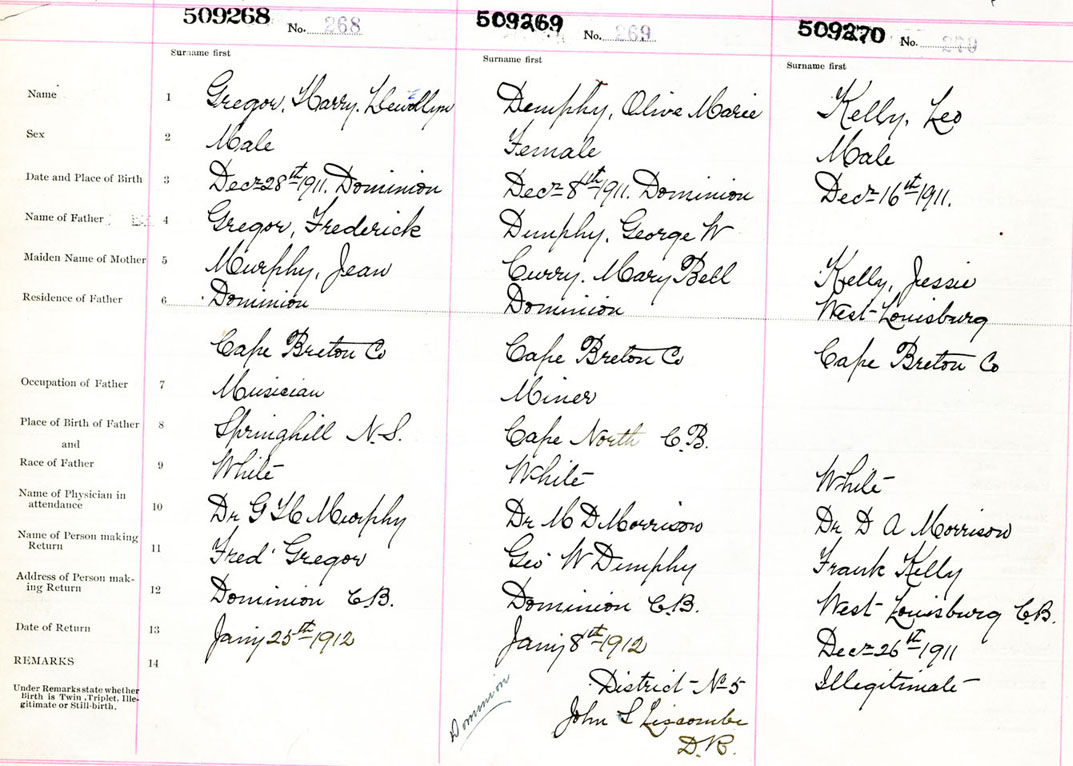 509268 No. 268
509269 No. 269
509270 No. 270
Surname first
Surname first
Surname first
Name 1 Gregor, Harry. Llewellyn
Demphy, Olive Marie
Kelly, Leo
Sex 2 Male
Female
Male
Date and Place of Birth 3 Decr 28th 1911. Dominion
Decr 8th 1911. Dominion
Decr 16th 1911.
Name of Father 4 Gregor, Frederick
Demphy, George W
Maiden Name of Mother 5 Murphy, Jean
Curry. Mary Bell
Kelly, Jessie
Residence of Father 6 Dominion
Dominion
West Louisburg
Cape Breton Co
Cape Breton Co
Cape Breton Co
Occupation of Father 7 Musician
Miner
Place of Birth of Father 8 Springhill N.S.
Cape North C.B.
and
Race of Father 9 White
White
White
Name of Physician in
attendance 10 Dr G H Murphy
Dr M D Morrison
Dr D A Morrison
Name of Person making
Return 11 Fred Gregor
Geo W Demphy
Frank Kelly
Address of Person mak-
ing Return 12 Dominion C.B.
Dominion C.B.
West Louisburg C.B.
Date of Return 13 Jany 25th 1912
Jany 8th 1912
Decr 26th 1911
REMARKS 14
Illegitimate
Under Remarks state whether
Birth is Twin, Triplet, Ille-
gitimate or Still-birth.
Dominion
District No 5
John S Liscombe
D.R.